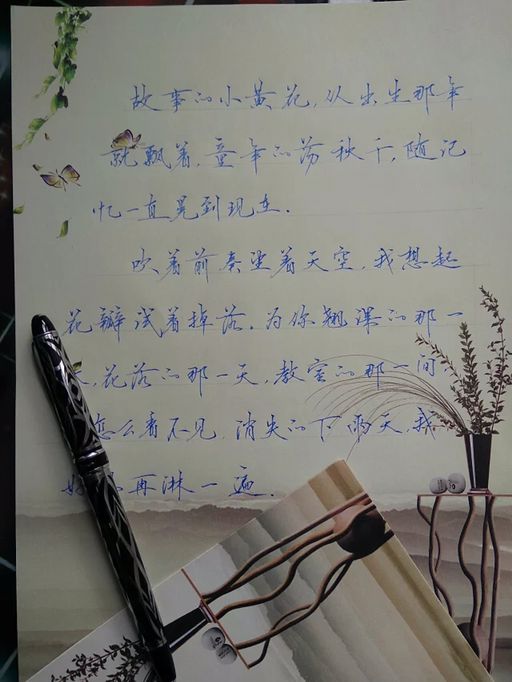 故事的小黄花,从出生那年
就飘着,童年的荡秋千,随记
忆一直晃到现在.
吹着前奏望着天空,我想起
花瓣试着掉落.为你翘课的那一
花落的那一天,教室的那一间
怎么看不见.消失的下雨天.我
好 再淋一遍.